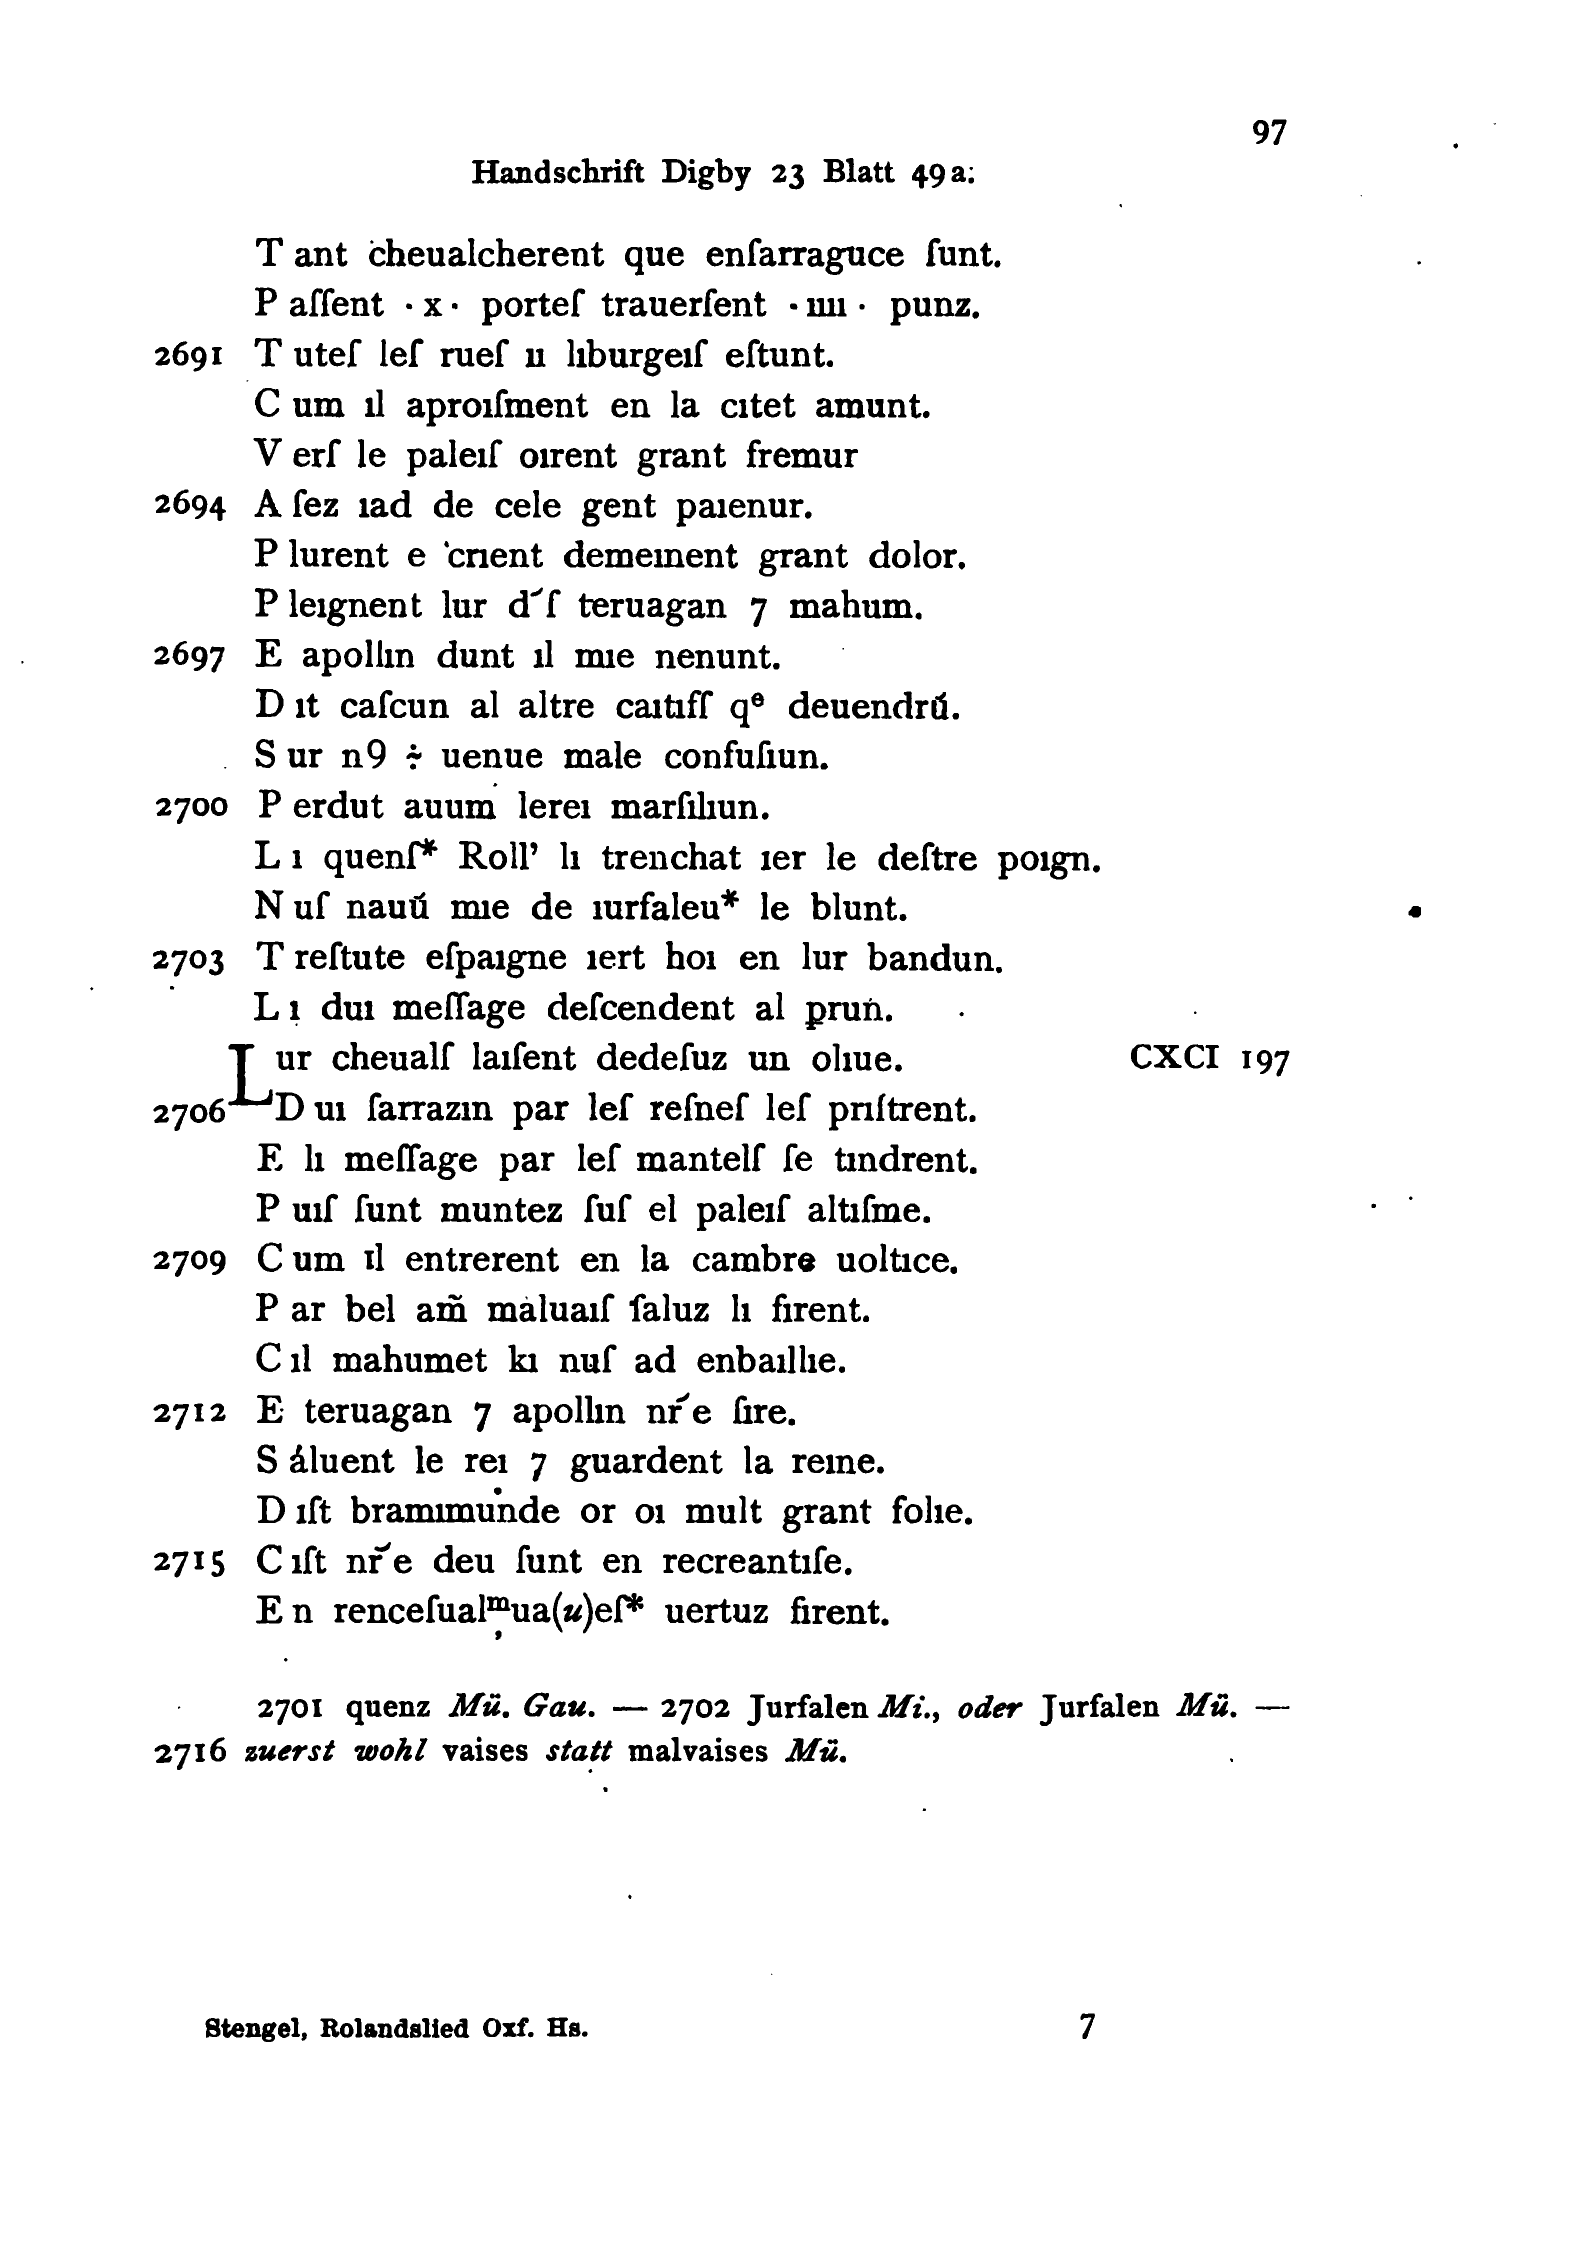 97
Handschrift Digby 23 Blatt 49a.
T ant cheualcherent que enſarraguce ſunt.
P aſſent · x · porteſ trauerſent · ıııı · punz.
2691 T uteſ leſ rueſ u lıburgeıſ eſtunt.
C um ıl aproıſment en la cıtet amunt.
V erſ le paleıſ oırent grant fremur
2694 A ſez ıad de cele gent paıenur.
P lurent e crıent demeınent grant dolor.
P leıgnent lur d´ſ teruagan 7 mahum.
2697 E apollın dunt ıl mıe nenunt.
D ıt caſcun al altre caıtıff qᵉ deuendrú.
S ur n9 ÷ uenue male confuſıun.
2700 P erdut auum lereı marſılıun.
L ı quenſ* Roll’ lı trenchat ıer le deſtre poıgn.
N uſ nauú mıe de ıurfaleu* le blunt.
2703 T reſtute eſpaıgne ıert hoı en lur bandun.
L ı duı meſſage deſcendent al ꝑrun.
L ur cheualſ laıſent dedeſuz un olıue. CXCI 197
2706 D uı ſarrazın par leſ reſneſ leſ prıſtrent.
E lı meſſage par leſ mantelſ ſe tındrent.
P uıſ ſunt muntez ſuſ el paleıſ altıſme.
2709 C um ıl entrerent en la cambre uoltıce.
P ar bel am̃ maluaıſ ſaluz lı fırent.
C ıl mahumet kı nuſ ad enbaıllıe.
2712 E teruagan 7 apollın nr´e ſıre.
S áluent le reı 7 guardent la reıne.
D ıſt bramımunde or oı mult grant folıe.
2715 C ıſt nr´e deu ſunt en recreantıſe.
E n renceſualᵐ̦ua(u)eſ* uertuz fırent.
2701 quenz Mü. Gau. — 2702 Jurfalen Mi., oder Jurfalen Mü. —
2716 zuerst wohl vaises statt malvaises Mü.
Stengel, Rolandslied Oxf. Hs. 7